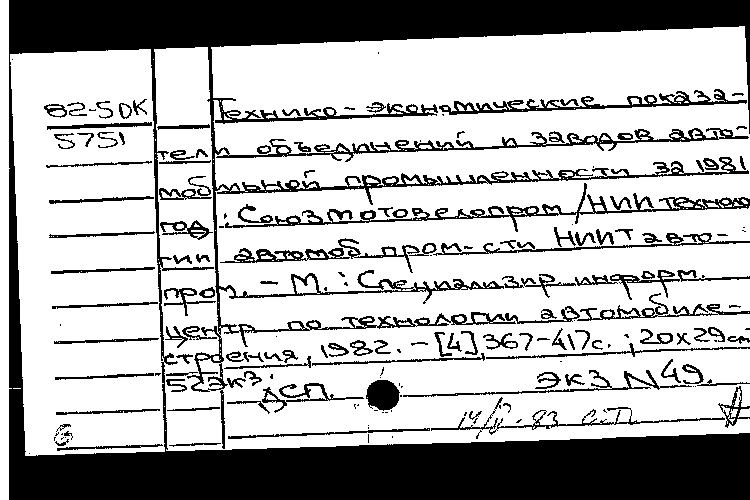 82-5 ДК Технико-экономические показа-
5751 тели объединений и заводов авто-
мобильной промышленности за 1981
год : Союзмотовелопром / НИИ техноло
гии автомоб. пром-сти НИИТавто-
пром. - М. : Специализир информ.
центр по технологии автомобиле-
строения, 1982. - [4], 367-417с. ; 20х29см
52экз.
ДСП. ЭКЗ N49.
83
Б